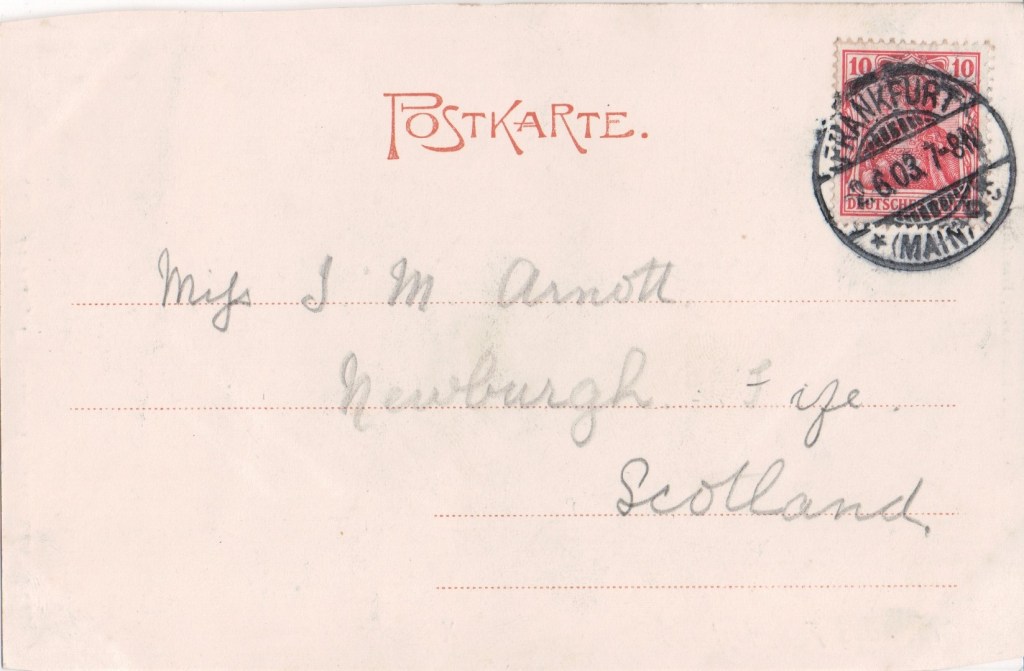 POSTKARTE.
10 10
FRANKFURT
6.03. 7-8N.
DEUTSCHES
* (MAIN)
Miss J M Arnott
Newburgh Fife.
Scotland.